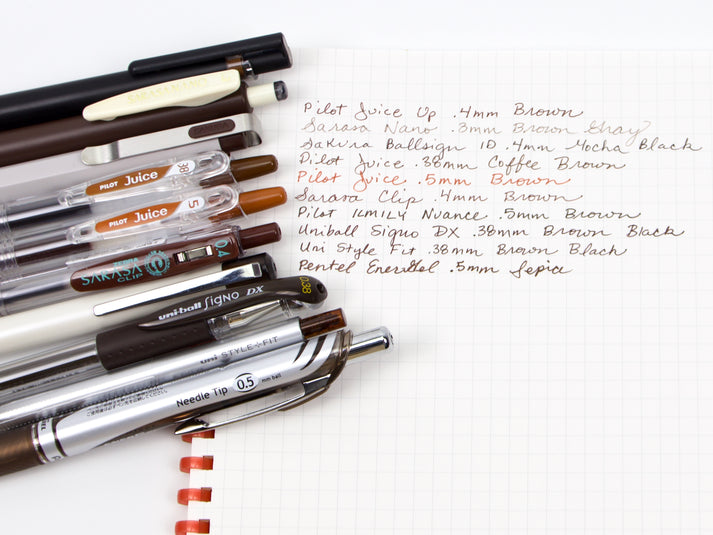 Pilot Juice Up .4mm Brown
Sarasa Nano .3mm Brown Gray
Sakura Ballsign ID .4mm Mocha Black
Pilot Juice .38mm Coffee Brown
Pilot Juice .5mm Brown
Sarasa Clip .4mm Brown
Pilot ILMILY Nuance .5mm Brown
Uniball Signo DX .38mm Brown Black
Uni Style Fit .38mm Brown Black
Pentel EnerGel .5mm Sepia
SARASA NANO
PILOT Juice 38
PILOT Juice 5
ZEBRA SARASA CLIP 0.4
uni-ball Signo DX 038
uni STYLE-FIT
Needle Tip 0.5 mm ball